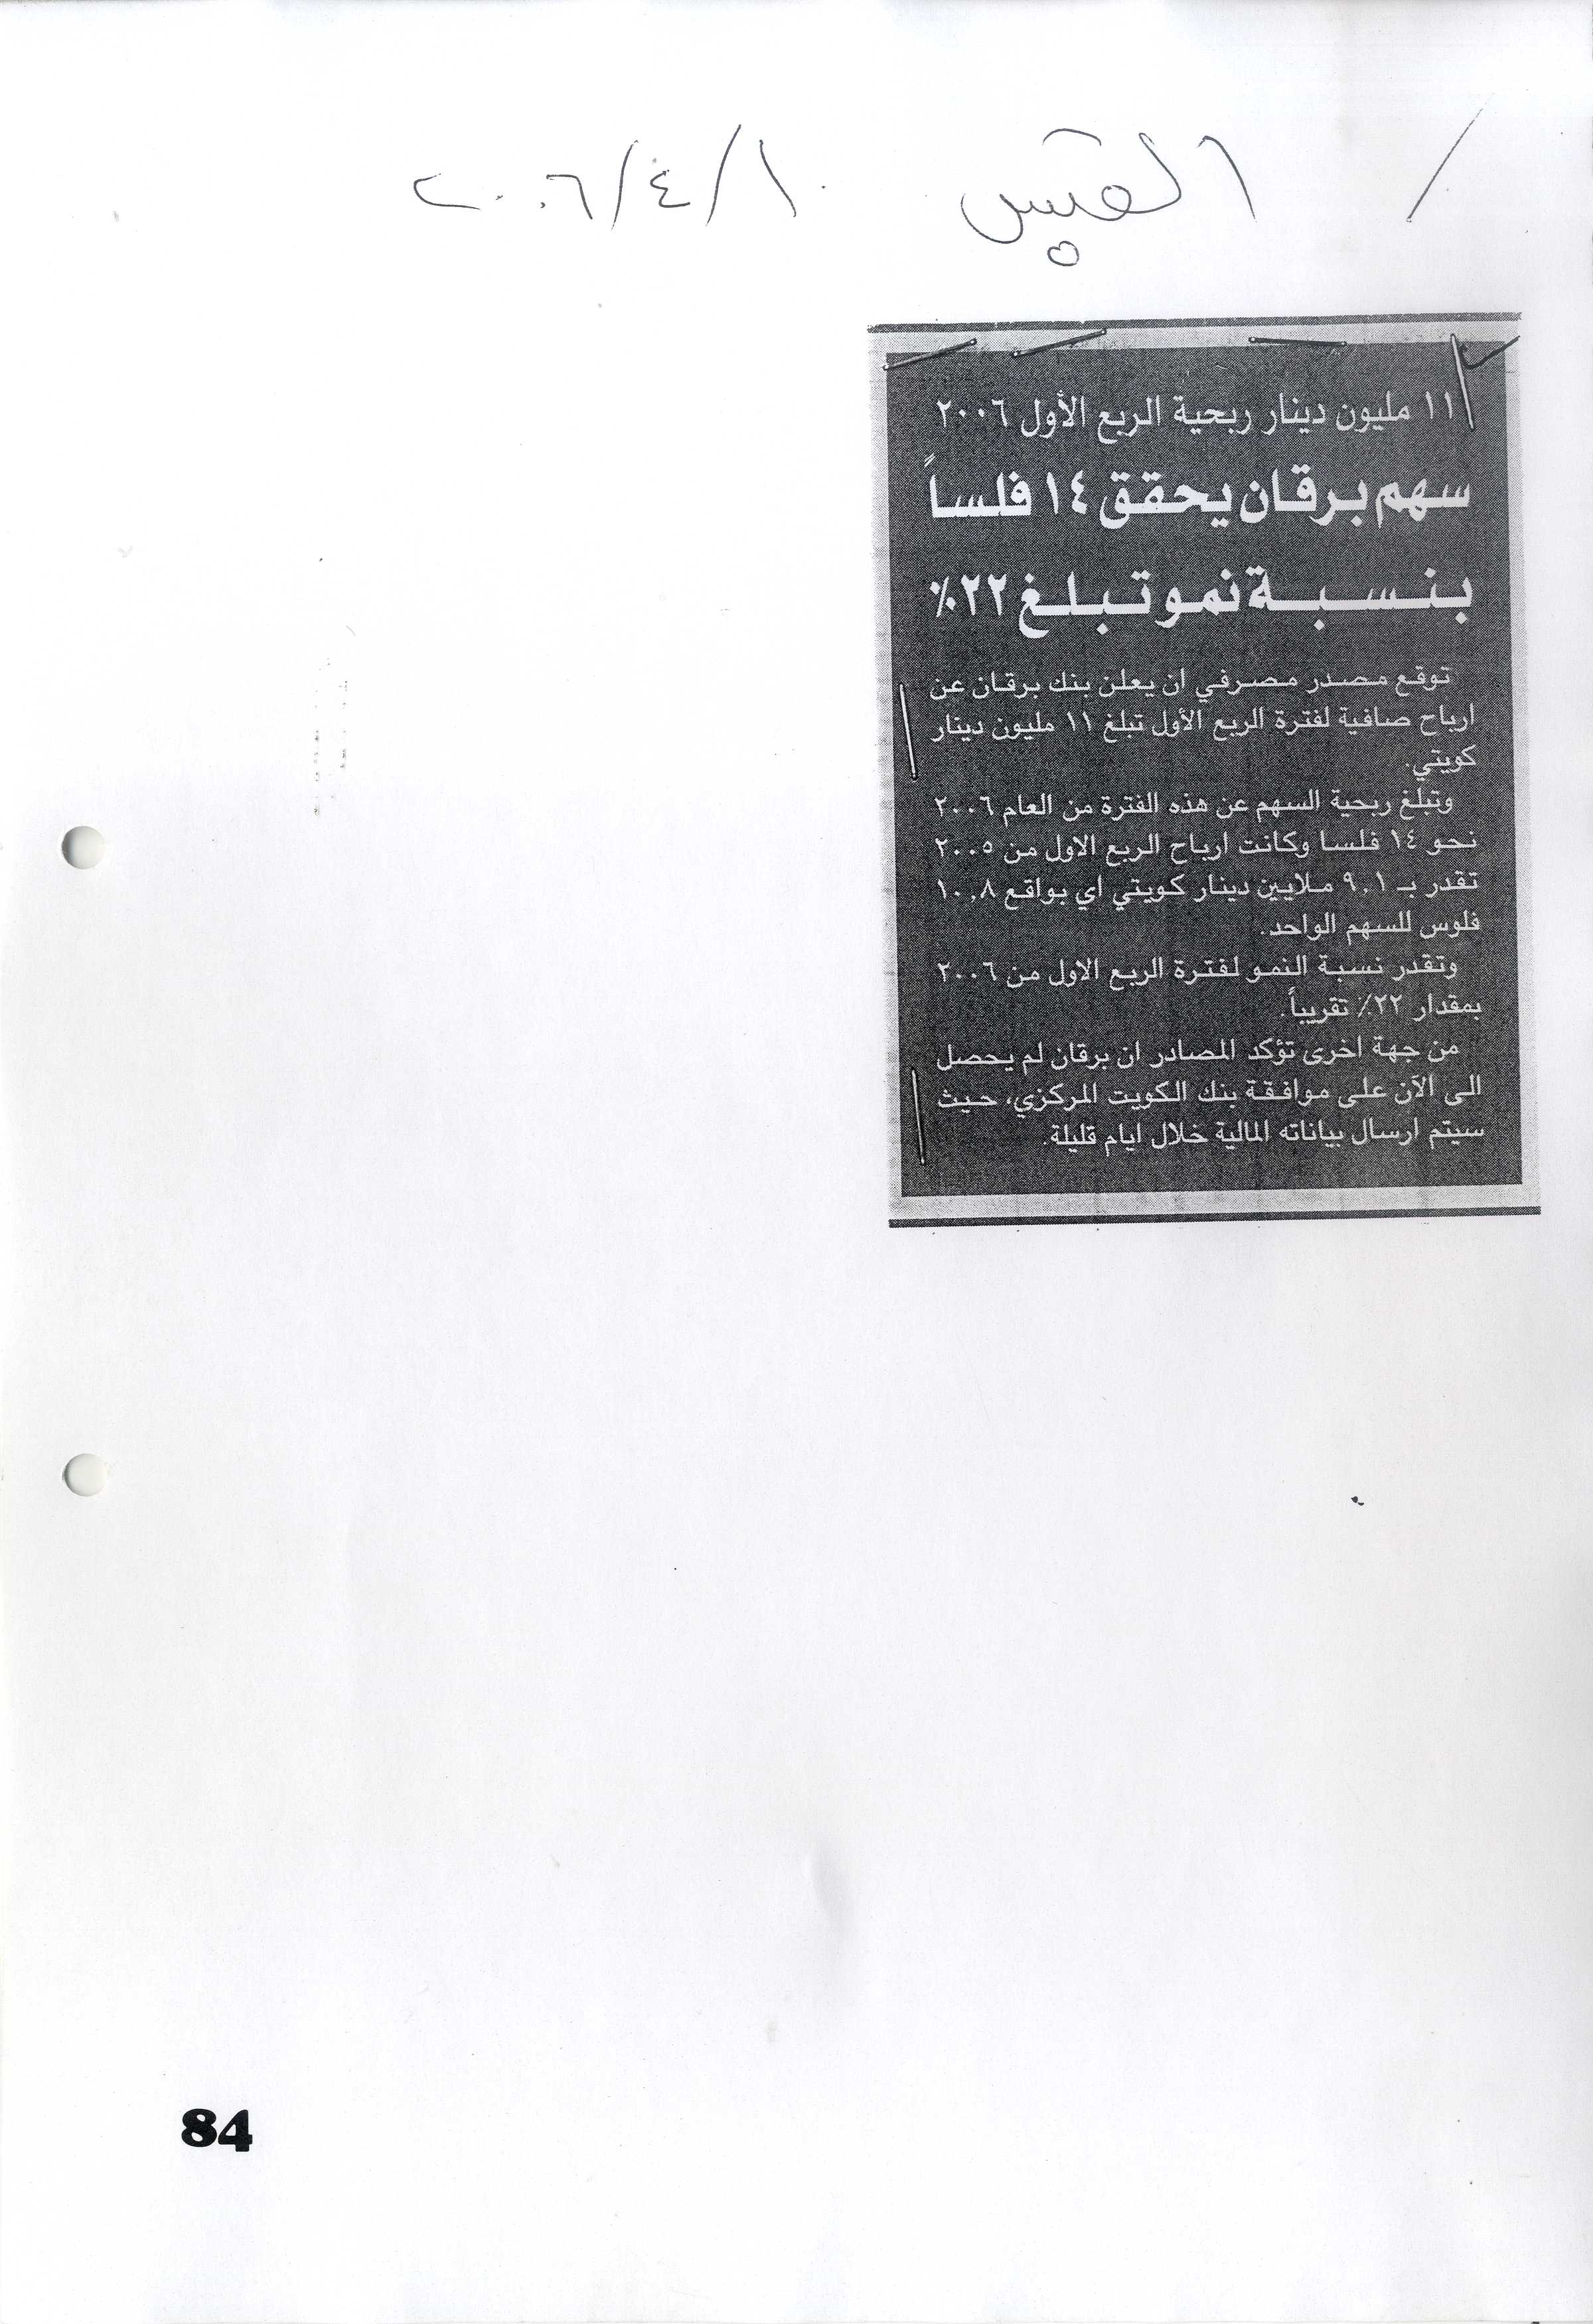 القبس ١٠/٤/٢٠٠٦
١١ مليون دينار ربحية الربع الأول ٢٠٠٦
سهم برقان يحقق ١٤ فلساً
بنسبة نمو تبلغ ٢٢٪
توقع مصدر مصرفي ان يعلن بنك برقان عن
ارباح صافية لفترة الربع الأول تبلغ ١١ مليون دينار
كويتي.
وتبلغ ربحية السهم عن هذه الفترة من العام ٢٠٠٦
نحو ١٤ فلسا وكانت ارباح الربع الاول من ٢٠٠٥
تقدر بـ ٩,١ ملايين دينار كويتي اي بواقع ١٠,٨
فلوس للسهم الواحد.
وتقدر نسبة النمو لفترة الربع الاول من ٢٠٠٦
بمقدار ٢٢٪ تقريباً.
من جهة اخرى تؤكد المصادر ان برقان لم يحصل
الى الآن على موافقة بنك الكويت المركزي، حيث
سيتم ارسال بياناته المالية خلال ايام قليلة.
84